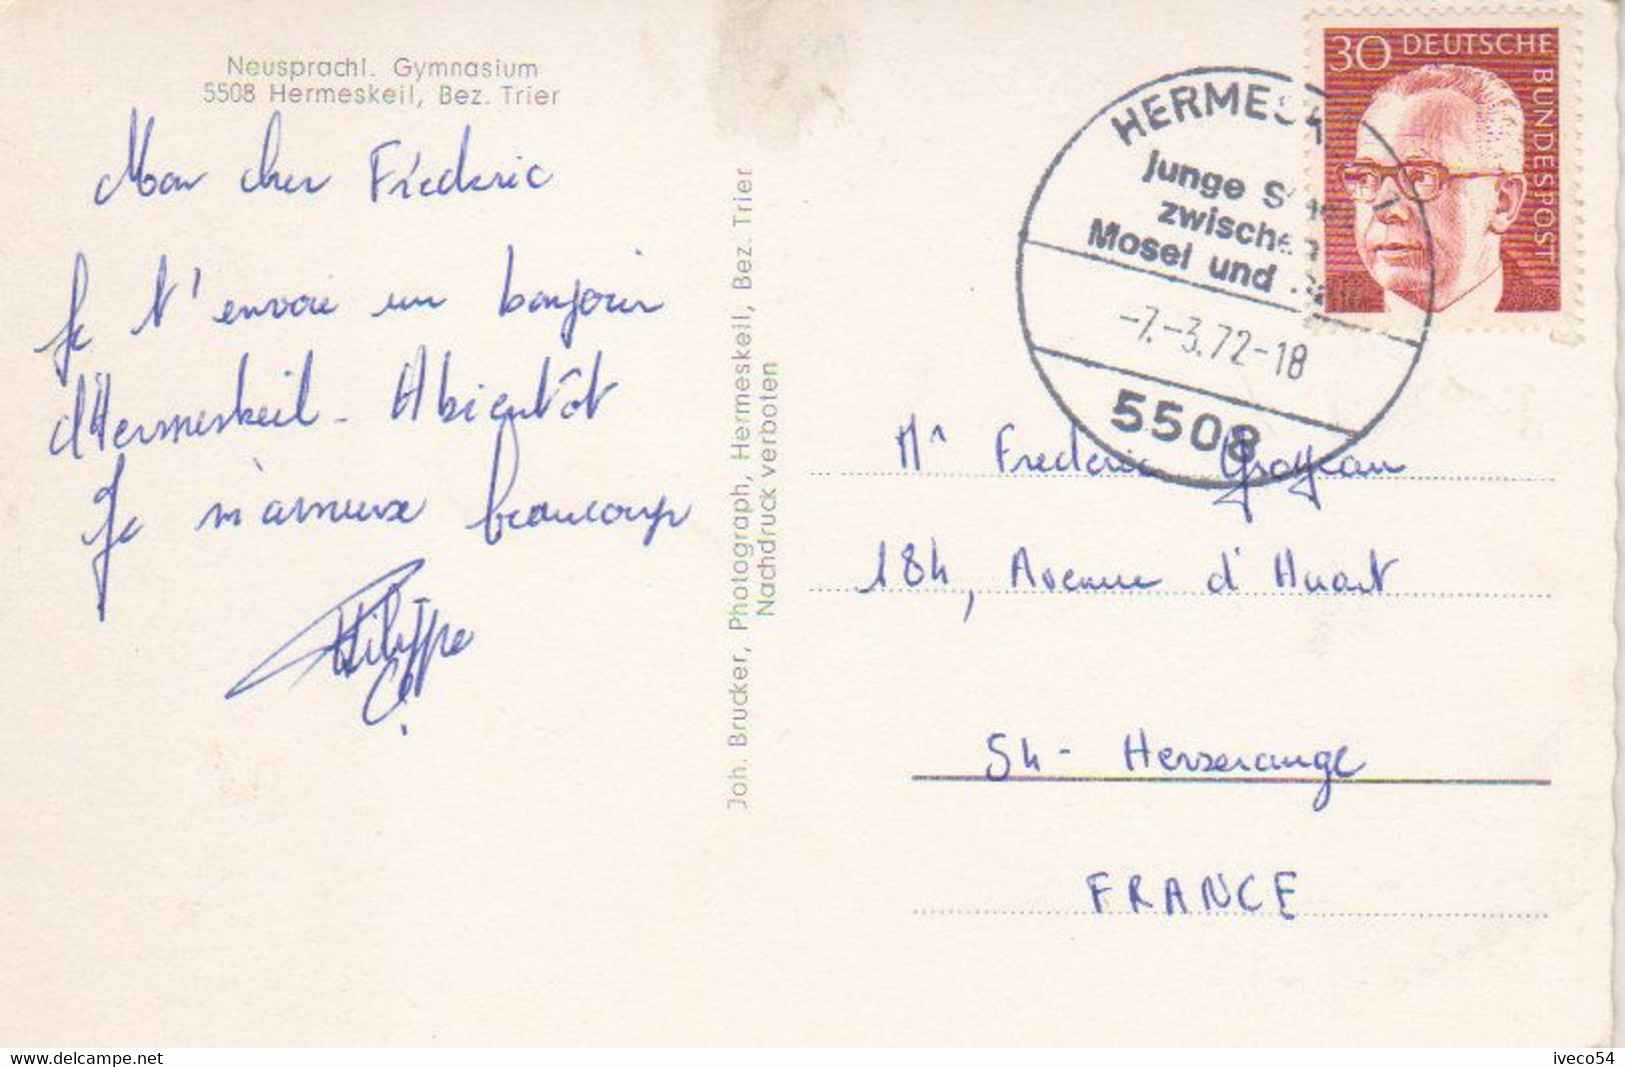 Neusprachl. Gymnasium
5508 Hermeskeil, Bez. Trier
Mon cher Fréderic
Je t'envoie un bonjour
d'Hermeskeil - A bientôt
Je m'amuse beaucoup
Philippe
Joh. Brucker, Photograph, Hermeskeil, Bez. Trier
Nachdruck verboten
30 DEUTSCHE
BUNDESPOST
HERMESK
Junge
zwischen
Mosel und
-7.-3.72-18
5508
Mr Frederic Grosjean
184, Avenue d'Huart
54 - Herserange
FRANCE
www.delcampe.net
iveco54